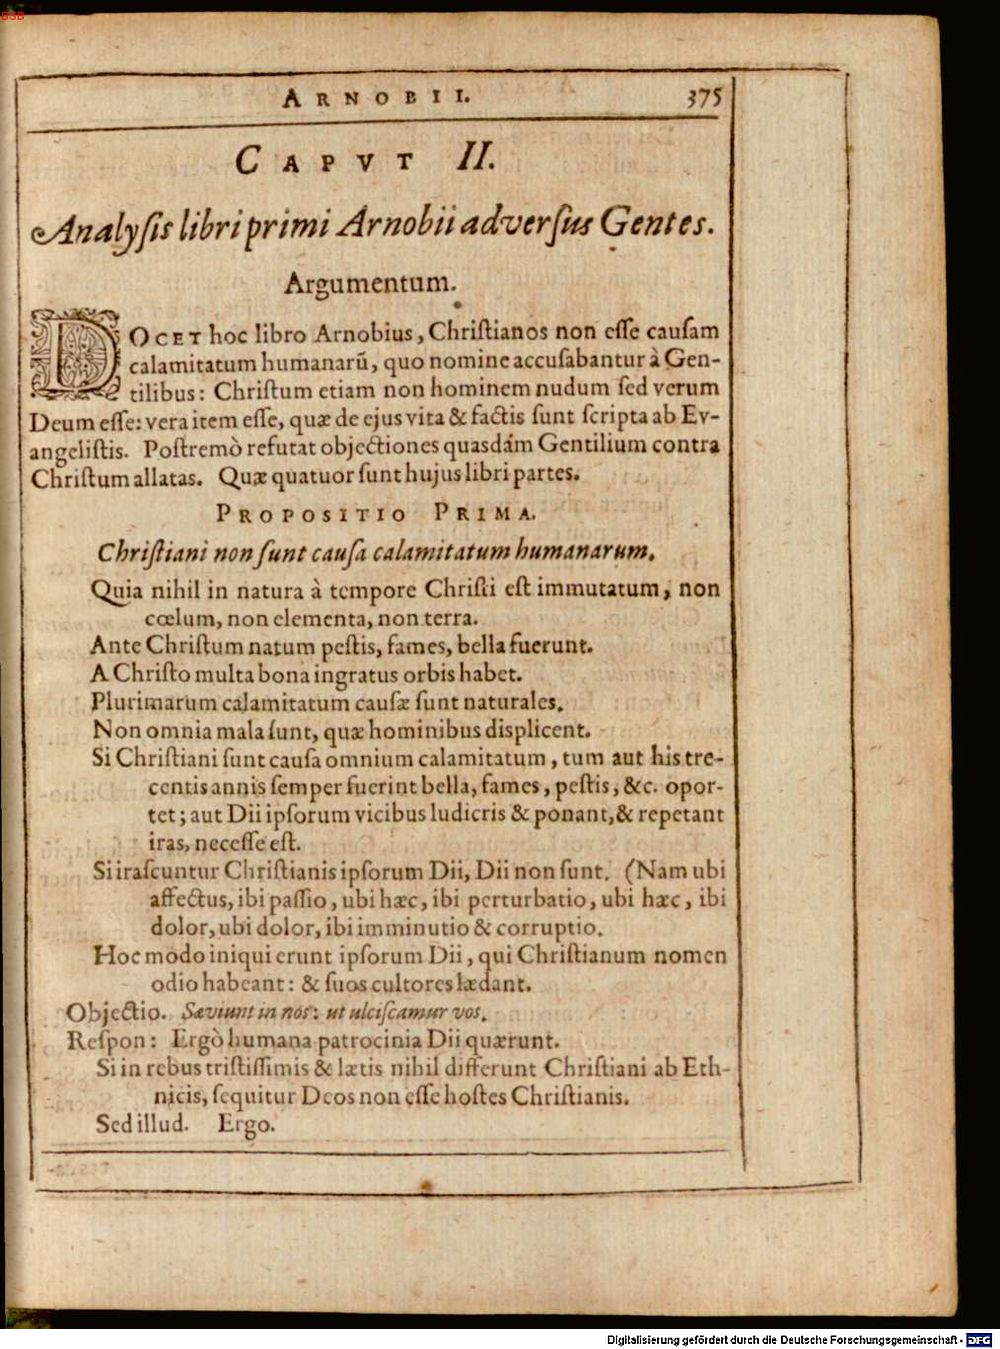 BSB
ARNOBII. 375
CAPVT II.
Analyſis libri primi Arnobii adverſus Gentes.
Argumentum.
DOCET hoc libro Arnobius, Chriſtianos non eſſe cauſam
calamitatum humanarū, quo nomine accuſabantur à Gen-
tilibus: Chriſtum etiam non hominem nudum ſed verum
Deum eſſe: vera item eſſe, quæ de ejus vita & factis ſunt ſcripta ab Ev-
angeliſtis. Poſtremò refutat objectiones quasdám Gentilium contra
Chriſtum allatas. Quæ quatuor ſunt hujus libri partes.
PROPOSITIO PRIMA.
Chriſtiani non ſunt cauſa calamitatum humanarum.
Quia nihil in natura à tempore Chriſti eſt immutatum, non
cœlum, non elementa, non terra.
Ante Chriſtum natum peſtis, fames, bella fuerunt.
A Chriſto multa bona ingratus orbis habet.
Plurimarum calamitatum cauſæ ſunt naturales.
Non omnia mala ſunt, quæ hominibus displicent.
Si Chriſtiani ſunt cauſa omnium calamitatum, tum aut his tre-
centis annis ſemper fuerint bella, fames, peſtis, &c. opor-
tet; aut Dii ipſorum vicibus ludicris & ponant, & repetant
iras, neceſſe eſt.
Si iraſcuntur Chriſtianis ipſorum Dii, Dii non ſunt. (Nam ubi
affectus, ibi paſſio, ubi hæc, ibi perturbatio, ubi hæc, ibi
dolor, ubi dolor, ibi imminutio & corruptio.
Hoc modo iniqui erunt ipſorum Dii, qui Chriſtianum nomen
odio habeant: & ſuos cultores lædant.
Objectio. Sæviunt in nos: ut ulciſcamur vos.
Reſpon: Ergò humana patrocinia Dii quærunt.
Si in rebus triſtiſſimis & lætis nihil differunt Chriſtiani ab Eth-
nicis, ſequitur Deos non eſſe hoſtes Chriſtianis.
Sed illud. Ergo.
Digitalisierung gefördert durch die Deutsche Forschungsgemeinschaft - DFG